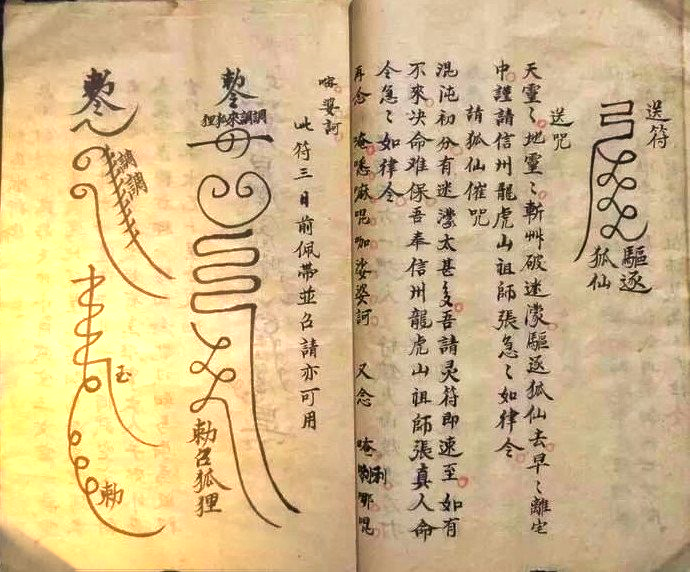 送符
驅逐
狐仙
送咒
天靈〻地靈〻斬艸破迷濛驅逐狐仙去早〻離宅
中謹請信州龍虎山祖師張急〻如律令
請狐仙催咒
混沌初分有迷濛太甚多吾請灵符即速至如有
不來决命难保吾奉信州龍虎山祖師張真人命
令急〻如律令
再念 唵嘛呢咖娑婆訶 又念 唵哪呢
婆訶
此符三日前佩帶並召請亦可用
勅召狐狸
玉
勅